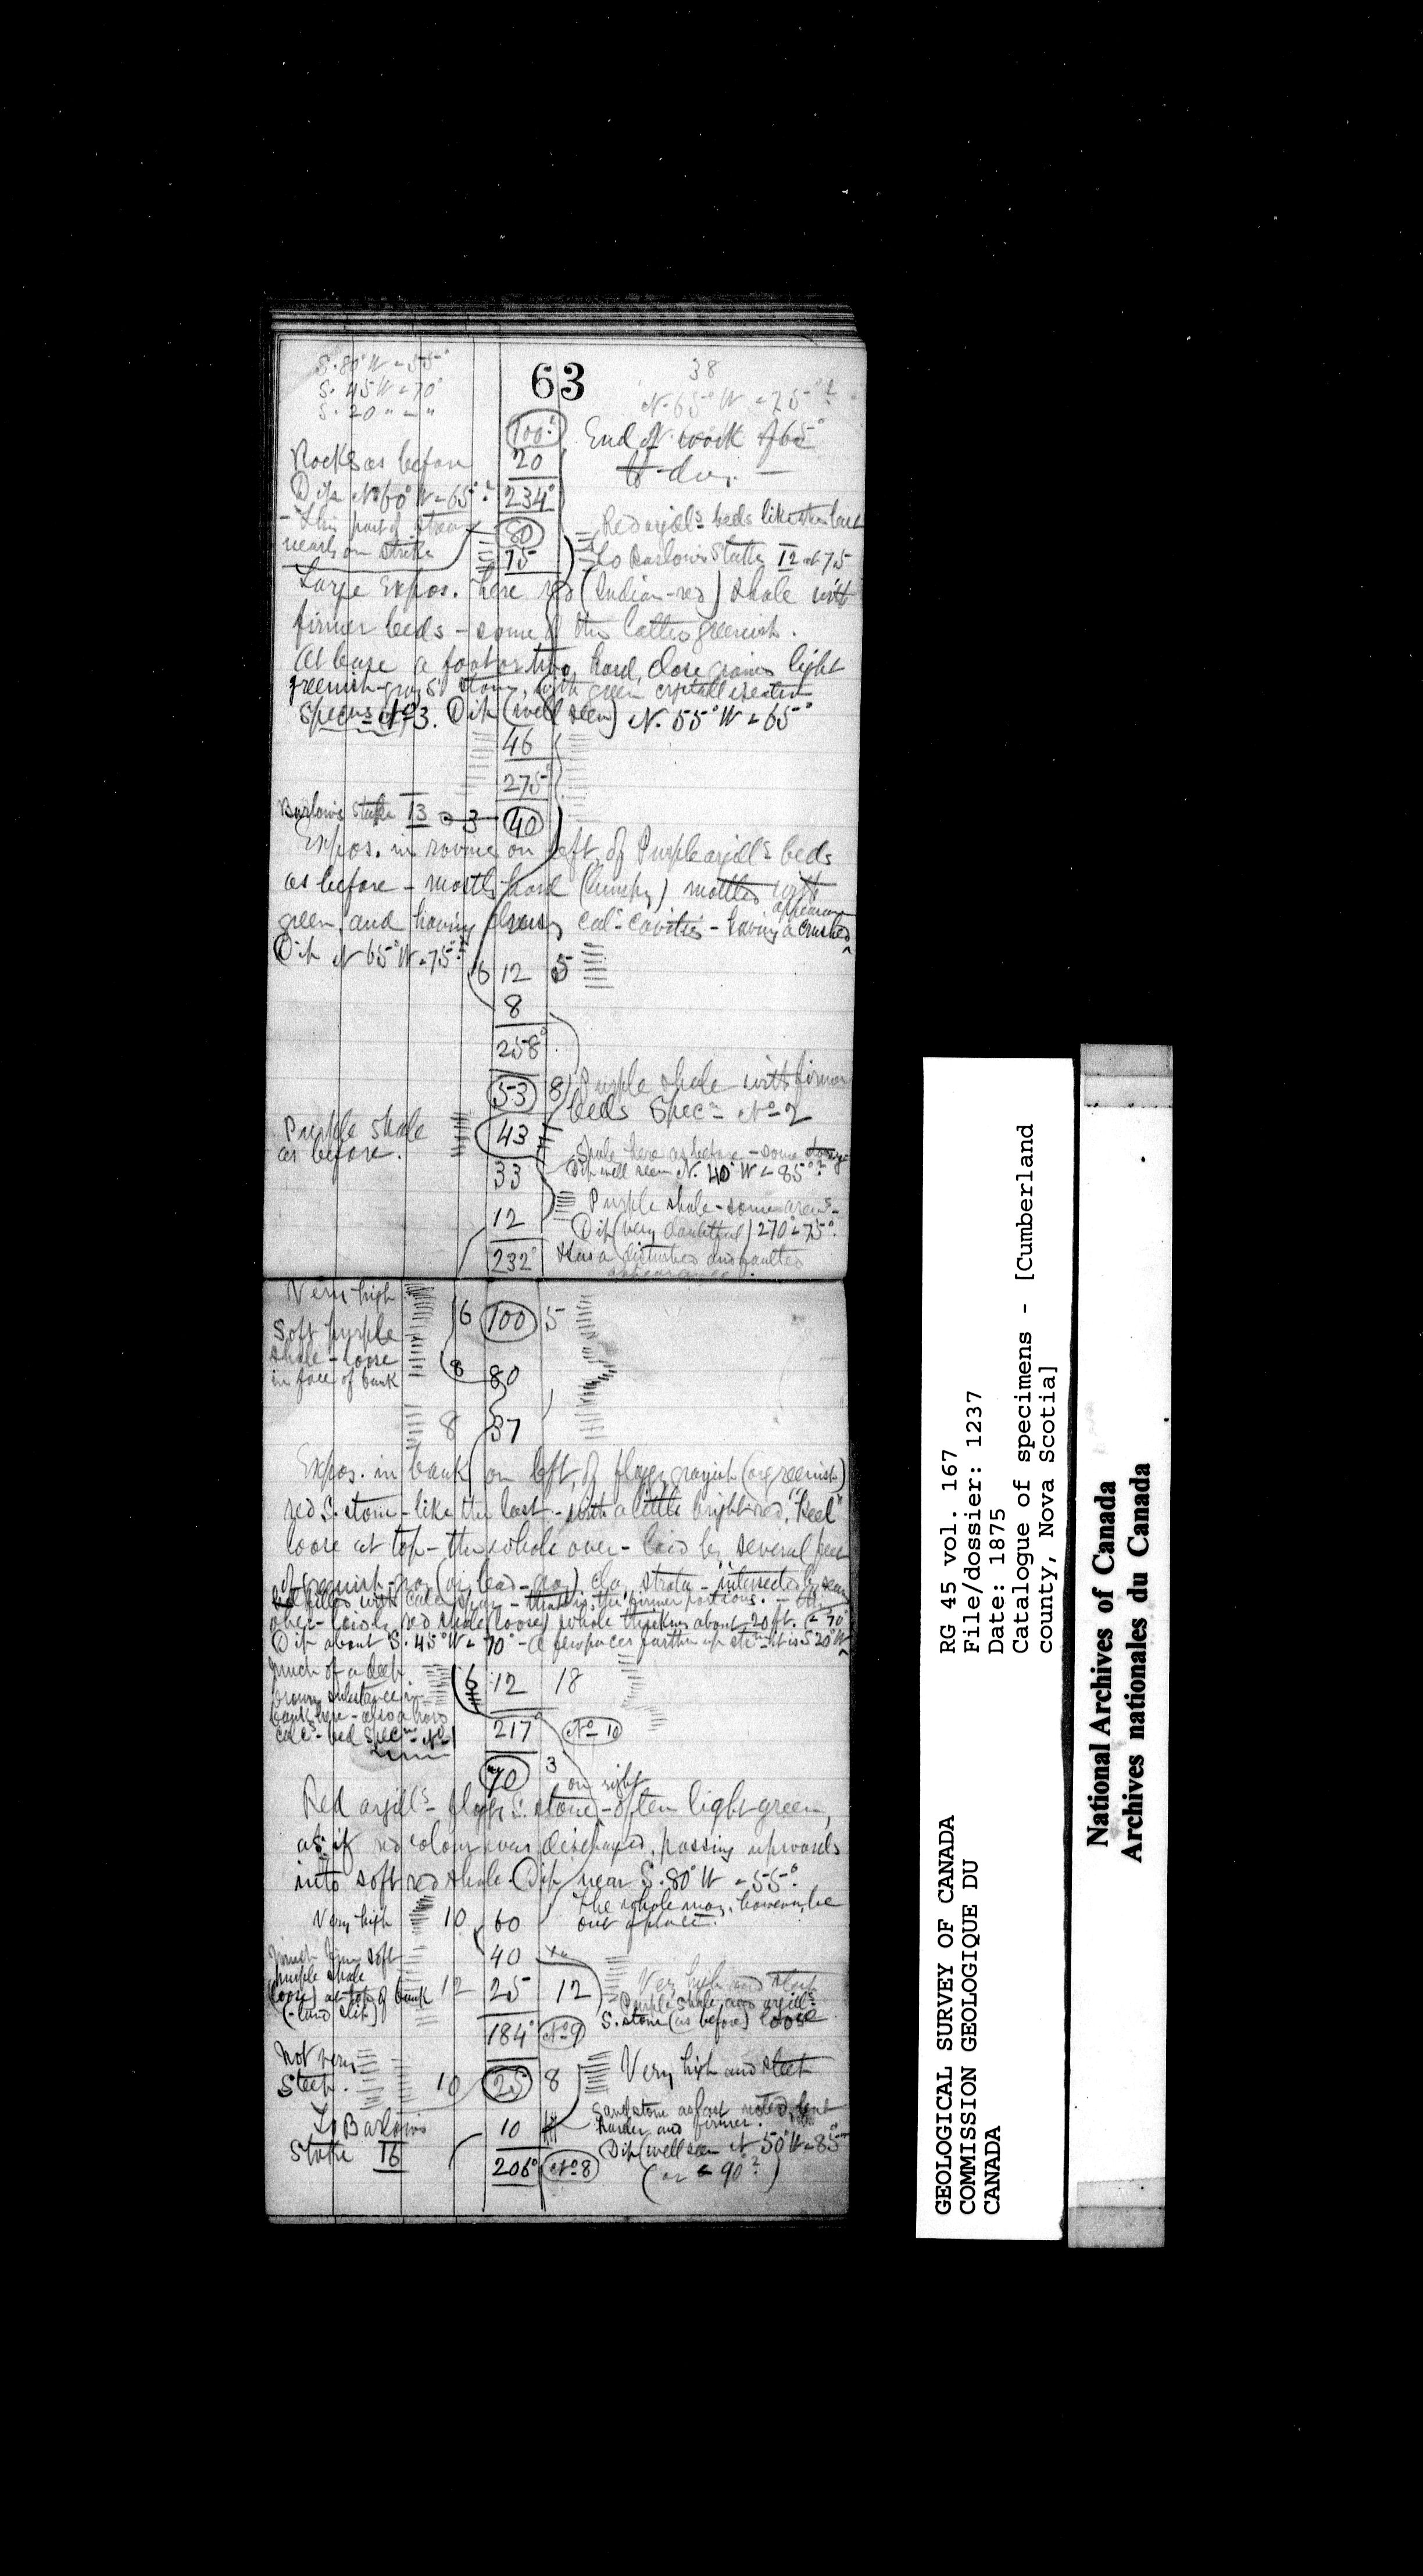 63
38
S. 80° W < 55°
S. 45 W < 70°
S. 20 " < "
N. 65° W < 75°?
100
End of work for
20
Rocks as before
Dip N 60° W < 65°?
234°
This part of stream
nearly on strike
80
75
Red argills beds like the last
To Barlow's Stake 12 at 75
Large expos. here red (Indian-red) shale with
firmer beds - some of the latter greenish.
At base a foot or two hard, close grained light
greenish-gray S. stone, with green
Specns No 3. Dip (well seen) N. 55° W < 65°
46
275°
Barlow's stake 13 3 40
Expos. in ravine on left, of Purple argills beds
as before - mostly hard (lumpy) mottled with
green, and having cals cavities - having a crushed
appearance
Dip N 65° W < 75°?
6 12 5
8
258°
53 8
Purple shale with firmer
beds Specn No 2
Purple shale
as before.
43
Shale here as before - some
Dip well seen N. 40° W < 85°?
33
Purple shale - some arens
12
Dip (very doubtful) 270° < 75°
232°
Has a disturbed and faulted
appearance.
Very high
6 100 5
Soft purple
shale - loose
in face of bank
8 80
8 37
Expos. in bank on left, of flaggy grayish (or greenish)
red S. stone - like the last - with a little bright red "keel"
loose at top - the whole over-laid by several feet
of greenish-gray (or lead-gray) clay strata - intersected by seams
filled with calc spar - that is, the firmer portions. -
over-laid by red shale (loose) whole thickness about 20 ft.
Dip about S. 45° W < 70° - a few paces farther up stm it is S 20° W < 70°
much of a deep
brown substance in
bank here - also a hard
calcs bed Specn No 1
6 12 18
217° No 10
70 3
on right
Red argills flaggy S. stone - often light green,
as if red colour was discharged, passing upwards
into soft red shale. Dip near S. 80° W < 55°
The whole may, however, be
out of place.
Very high 10 60
40
soft
purple shale
(loose) at top of bank
(-land slip)
12 25 12
Very high and steep
Purple shale and argills
S. stone (as before) loose
184° No 9
Not very
Steep.
10 25 8
Very high and steep
To Barlow's
Stake 16
10
Sandstone as last noted, but
harder and firmer.
Dip (well seen N 50° W < 85°
206° No 8
(or < 90°?)
RG 45 vol. 167
File/dossier: 1237
Date: 1875
Catalogue of specimens - [Cumberland
county, Nova Scotia]
GEOLOGICAL SURVEY OF CANADA
COMMISSION GEOLOGIQUE DU
CANADA
National Archives of Canada
Archives nationales du Canada